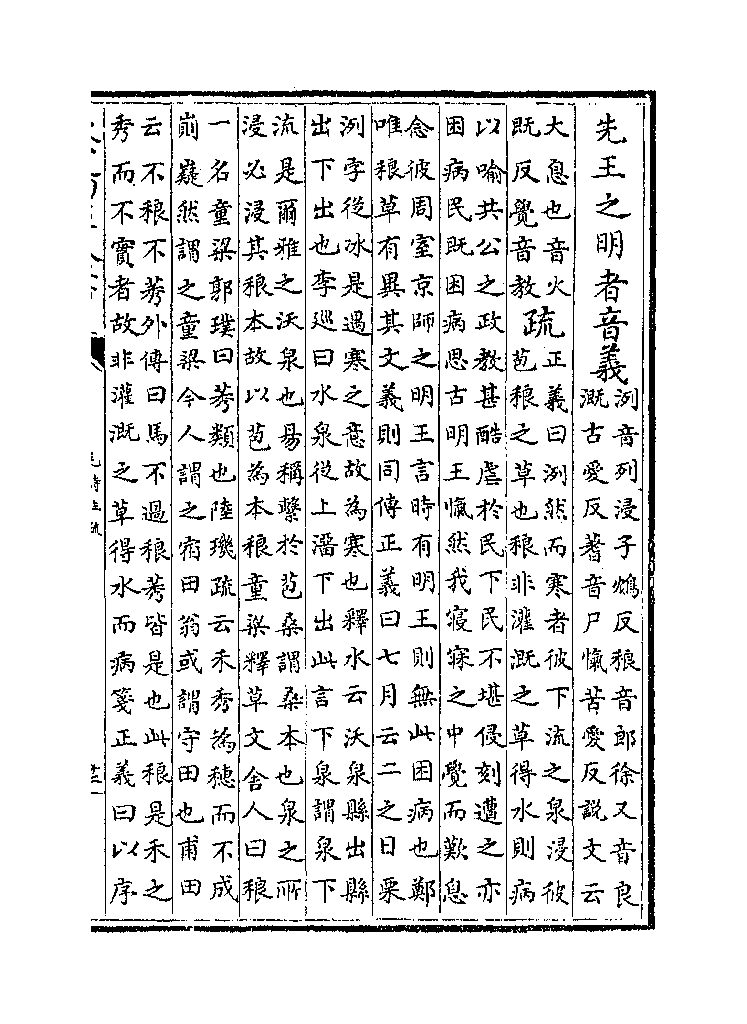 先王之明者音義
洌音列浸子鴆反稂音郎徐又音良
溉古愛反蓍音尸愾苦愛反説文云
大息也音火
既反覺音教
疏
正義曰洌然而寒者彼下流之泉浸彼
苞稂之草也稂非灌溉之草得水則病
以喻共公之政教甚酷虐於民下民不堪侵刻遭之亦
困病民既困病思古明王愾然我寝寐之中覺而歎息
念彼周室京師之明王言時有明王則無此困病也鄭
唯稂草有異其文義則同傳正義曰七月云二之日栗
洌字從冰是遇寒之意故為寒也釋水云沃泉縣出縣
出下出也李廵曰水泉從上溜下出此言下泉謂泉下
流是爾雅之沃泉也易稱繫於苞桑謂桑本也泉之所
浸必浸其稂本故以苞為本稂童粱釋草文舍人曰稂
一名童粱郭璞曰莠類也陸璣疏云禾秀為穗而不成
崱嶷然謂之童粱今人謂之宿田翁或謂守田也甫田
云不稂不莠外傳曰馬不過稂莠皆是也此稂是禾之
秀而不實者故非灌溉之草得水而病箋正義曰以序
毛詩注疏